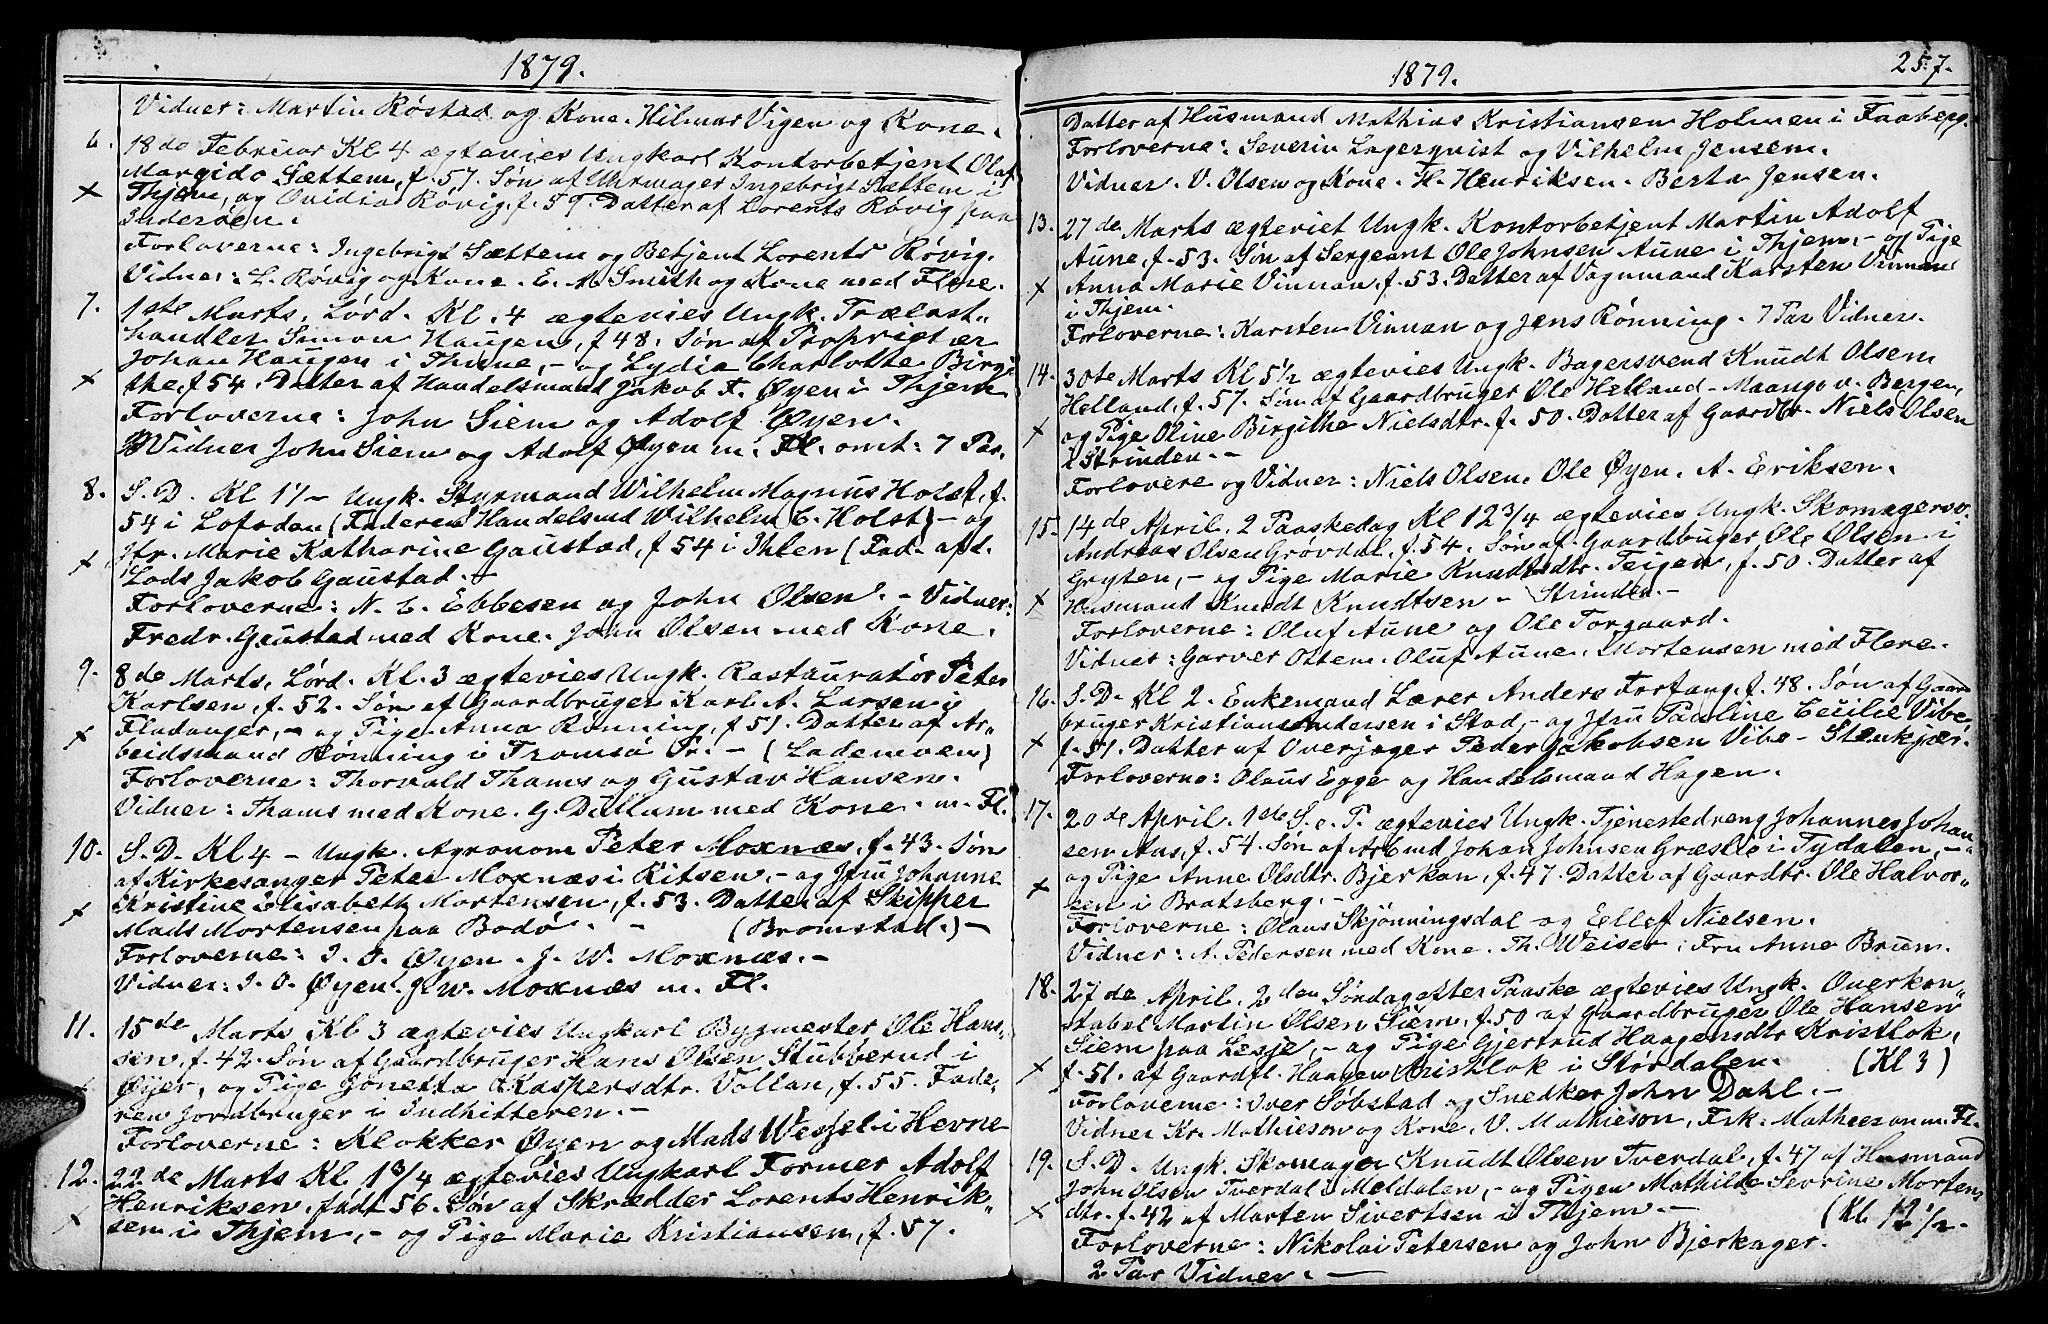 1879.
Vidner: Martin Røstad og Kone. Hilmar Vigen og Kone.
6. 18de Februar Kl 4 ægtevies Ungkarl Kontorbetjent Olaf
Margido Sættem, f. 57. Søn af Uhrmager Ingebrigt Sættem i
× Thjem, og Ovidia Røvig, f. 59. Datter af Lorents Røvig paa
Inderøen.
Forloverne: Ingebrigt Sættem og Betjent Lorents Røvig.
Vidner: L. Røvig og Kone. E. A. Smith og Kone med Flere.
7. 1ste Marts, Lørd. Kl. 4 ægtevies Ungk. Trælast-
handler Simon Haugen, f 48. Søn af Proprietær
Johan Haugen i Thune, - og Lydia Charlotte Birgi
× the, f 54. Datter af Handelsmand Jakob F. Øyen i Thjem
Forloverne: John Siem og Adolf Øyen.
Vidner John Siem og Adolf Øyen m. Fl. omt: 7 Par.
8. S. D. Kl 1½ - Ungk. Styrmand Wilhelm Magnus Holst, f.
54 i Lofoden (Faderen Handelsmd Wilhelm C. Holst) - og
× Jfr. Marie Katharine Gaustad, f 54 i Ihlen (Fad. afd.
Lods Jakob Gaustad. -
Forloverne: N. C. Ebbesen og John Olsen. - Vidner:
Fredr. Gaustad med Kone. John Olsen med Kone.
9. 8de Marts, Lørd. Kl. 3 ægtevies Ungk. Restauratør Peter
Karlsen, f. 52. Søn af Gaardbruger Karl A. Larsen i
× Fladanger, - og Pige Anna Rønning, f 51. Datter af Ar-
beidsmand Rønning i Tromsø Pr. - (Lademoen)
Forloverne: Thorvald Thams og Gustav Hansen.
Vidner: Thams med Kone. G. Dullum med Kone. m. Fl.
10. S. D. Kl 4 - Ungk. Agronom Peter Moxnæs, f. 43. Søn
af Kirkesanger Peter Moxnæs i Ritsen, - og Jfru Johanne
× Kristine Elisabeth Mortensen, f. 53. Datter af Skipper
Mads Mortensen paa Bodø. - (Bromstad.) -
Forloverne: I. O. Øyen. J. W. Moxnæs. -
Vidner: I. O. Øyen. J. W. Moxnæs m. Fl.
11. 15de Marts Kl 3 ægtevies Ungkarl Bygmester Ole Han-
sen, f. 42. Søn af Gaardbruger Hans Olsen Stubberud i
× Øyer, og Pige Jonetta Kaspersdtr. Vollan, f. 55. Fade-
ren Jordbruger i Indhitteren. -
Forloverne: Klokker Øyen og Mads Wessel i Hevne
12. 22de Marts Kl 1¾ ægtevies Ungkarl Former Adolf
Henriksen, født 56. Søn af Skrædder Lorents Henrik-
× sen i Thjem, - og Pige Marie Kristiansen, f. 57.
1879. 257.
Datter af Husmand Mathias Kristiansen Holmen i Faaberg.
Forloverne: Severin Lagerqvist og Vilhelm Jensen.
Vidner. V. Olsen og Kone. H. Henriksen. Berta Jensen.
13. 27de Marts ægteviet Ungk. Kontorbetjent Martin Adolf
Aune, f. 53. Søn af Sergeant Ole Johnsen Aune i Thjem, - og Pige
× Anna Marie Vinnan, f. 53. Datter af Vognmand Karsten Vinnan
i Thjem.
Forloverne: Karsten Vinnan og Jens Rønning. 7 Par Vidner.
14. 30te Marts Kl 5½ ægtevies Ungk. Bagersvend Knudt Olsen
Helland, f. 57. Søn af Gaardbruger Ole Helland - Maango v. Bergen,
× og Pige Oline Birgithe Nielsdtr. f. 50. Datter af Gaardbr. Niels Olsen
i Strinden. -
Forlovere og Vidner: Niels Olsen. Ole Øyen. A. Eriksen.
15. 14de April. 2 Paaskedag Kl 12¾ ægtevies Ungk. Skomagersv.
Andreas Olsen Grøvdal, f. 54. Søn af Gaardbruger Ole Olsen i
Gryten, - og Pige Marie Knudtsdtr. Teigen, f. 50. Datter af
× Husmand Knudt Knudtsen - Strinden. -
Forloverne: Oluf Aune og Ole Torgaard.
Vidner: Garver Ottem. Oluf Aune. Mortensen med Flere.
16. S. D. Kl 2. Enkemand Lærer Anders Fortang, f. 48. Søn af Gaard
bruger Kristian Andersen i Stod, - og Jfru Pauline Cecilie Vibe,
× f. 51. Datter af Overjæger Peder Jakobsen Vibe - Stenkjær.
Forloverne: Olaus Egge og Handelsmand Hagen.
17. 20de April. 1ste S. e. P. ægtevies Ungk. Tjenestedreng Johannes Johan
sen Aas, f. 54. Søn af Arbmd Johan Johnsen Græsli i Tydalen, -
× og Pige Anne Olsdtr. Bjerkan, f. 47. Datter af Gaardbr. Ole Halvor-
sen i Bratsberg. -
Forloverne: Olaus Skjønningsdal og Ellef Nielsen.
Vidner: A. Pedersen med Kone. Th. Weiser. Fru Anne Bruun.
18. 27de April. 2den Søndag efter Paaske ægtevies Ungk. Overkon-
stabel Martin Olsen Siem, f. 50 af Gaardbruger Ole Hansen
Siem paa Lesje, - og Pige Gjertrud Haagensdtr Kristlok,
× f. 51. af Gaardfl. Haagen Kristlok i Størdalen. (Kl 3)
Forloverne: Iver Søbstad og Snedker John Dahl. -
Vidner Kr. Mathieson og Kone, V. Mathieson, Frk. Mathieson m. Fl.
19. S. D. Ungk. Skomager Knudt Olsen Tverdal, f. 47 af Husmand
John Olsen Tverdal i Meldalen, - og Pigen Mathilde Sevrine Mortens
× dtr. f. 42 af Morten Sivertsen i Thjem. - (Kl 12½.
Forloverne: Nikolai Petersen og John Bjerkager.
2 Par Vidner. -